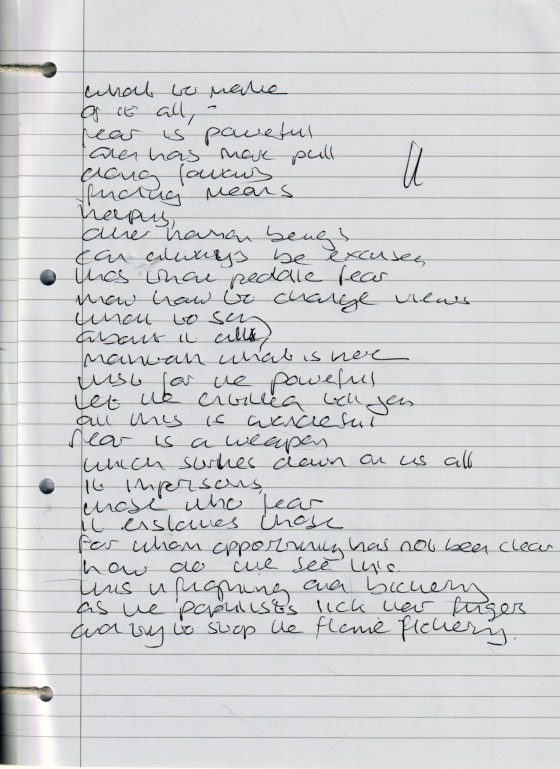 what to make
of it all, -
fear is powerful
has more pull
doing favours
finding means
helping,
other human beings
can always be excuses
those what peddle fear
know how to change views
what to say
about it all
maintain what is here
just for the powerful
let the children
all this is wonderful
fear is a weapon
which strikes down on us all
it imprisons,
those who fear
it enslaves those
for whom opportunity has not been clear
how do we see this
this infighting and bickering
as the populists lick their fingers
and try to stop the flame flickering.